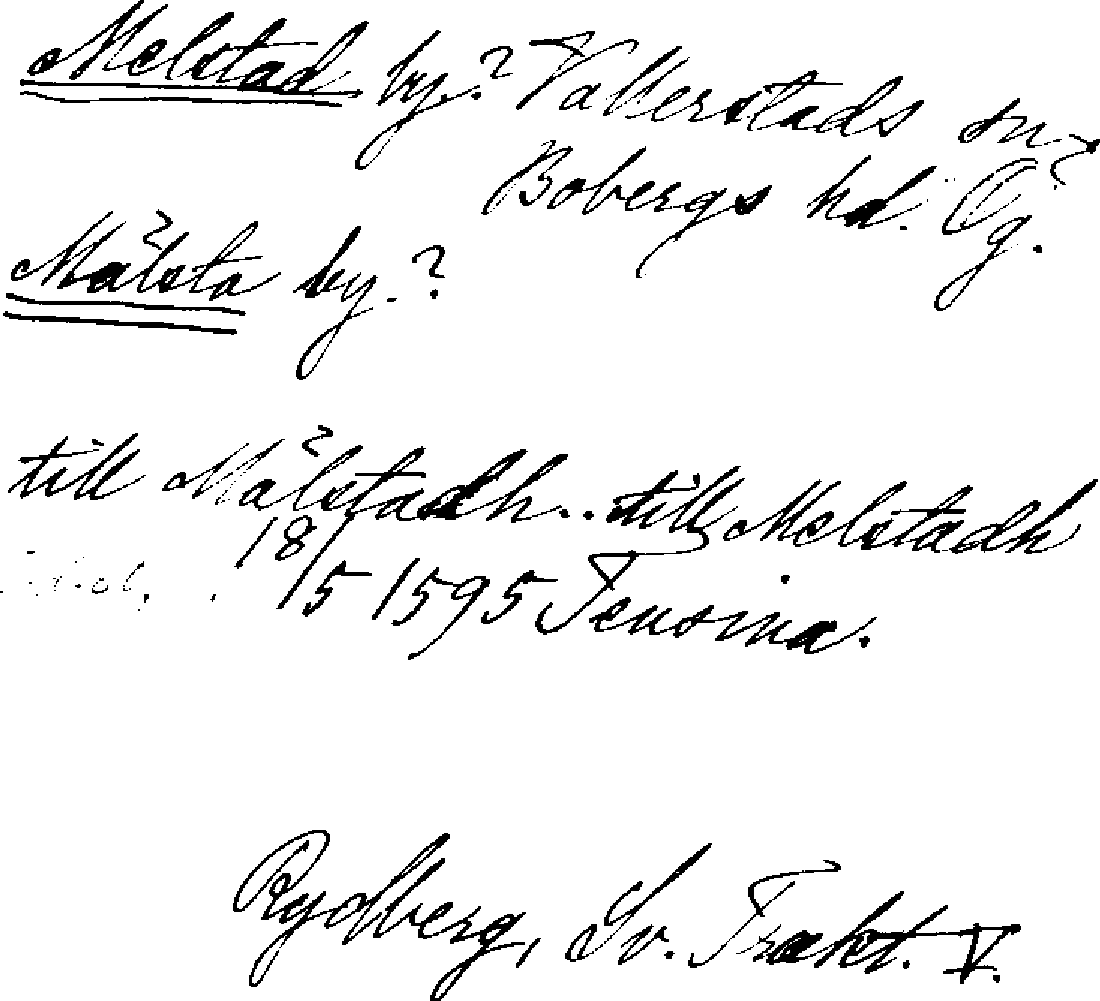 Melstad by.? Vallerstads sn?
Bobergs hd. Ög.
Målsta by.?
till Målstadh.. till Melstadh
18/5 1595 Teusina.
Rydberg, Sv. Trakt. V.